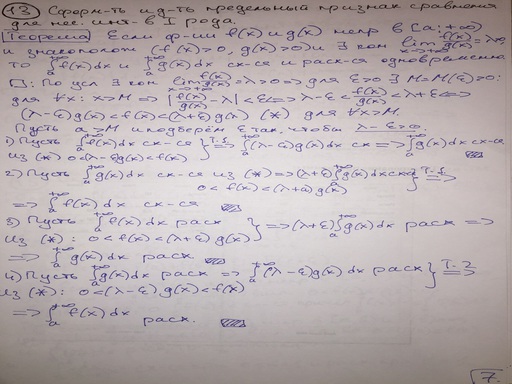 13 Сформ-ть и д-ть предельный признак сравнения
для нес. инт-в I рода.
Теорема Если ф-ии f(x) и g(x) непр в [a; +∞)
и знакополож (f(x)>0, g(x)>0) и ∃ кон lim x→+∞ f(x)/g(x) = λ>0,
то ∫_a^{+∞} f(x)dx и ∫_a^{+∞} g(x)dx сх-ся и расх-ся одновременно
□: По усл ∃ кон lim x→+∞ f(x)/g(x) = λ>0 => для ε>0 ∃ M=M(ε)>0:
для ∀x: x>M => |f(x)/g(x) - λ| < ε <=> λ-ε < f(x)/g(x) < λ+ε <=>
(λ-ε)g(x)<f(x)<(λ+ε)g(x) (*) для ∀x>M.
Пусть a>M и подберём ε так, чтобы λ-ε>0.
1) Пусть ∫_a^{+∞} f(x)dx сх-ся } T.1 => ∫_a^{+∞} (λ-ε)g(x)dx сх => ∫_a^{+∞} g(x)dx сх-ся
из (*) 0<(λ-ε)g(x)<f(x)
2) Пусть ∫_a^{+∞} g(x)dx сх-ся из (*) => (λ+ε)∫_a^{+∞} g(x)dx сх-ся } T.1 =>
0<f(x)<(λ+ε)g(x)
=> ∫_a^{+∞} f(x)dx сх-ся
3) Пусть ∫_a^{+∞} f(x)dx расх } => (λ+ε)∫_a^{+∞} g(x)dx расх =>
из (*): 0<f(x)<(λ+ε)g(x)
=> ∫_a^{+∞} g(x)dx расх
4) Пусть ∫_a^{+∞} g(x)dx расх => ∫_a^{+∞} (λ-ε)g(x)dx расх } T.2 =>
из (*): 0<(λ-ε)g(x)<f(x)
=> ∫_a^{+∞} f(x)dx расх.
7.